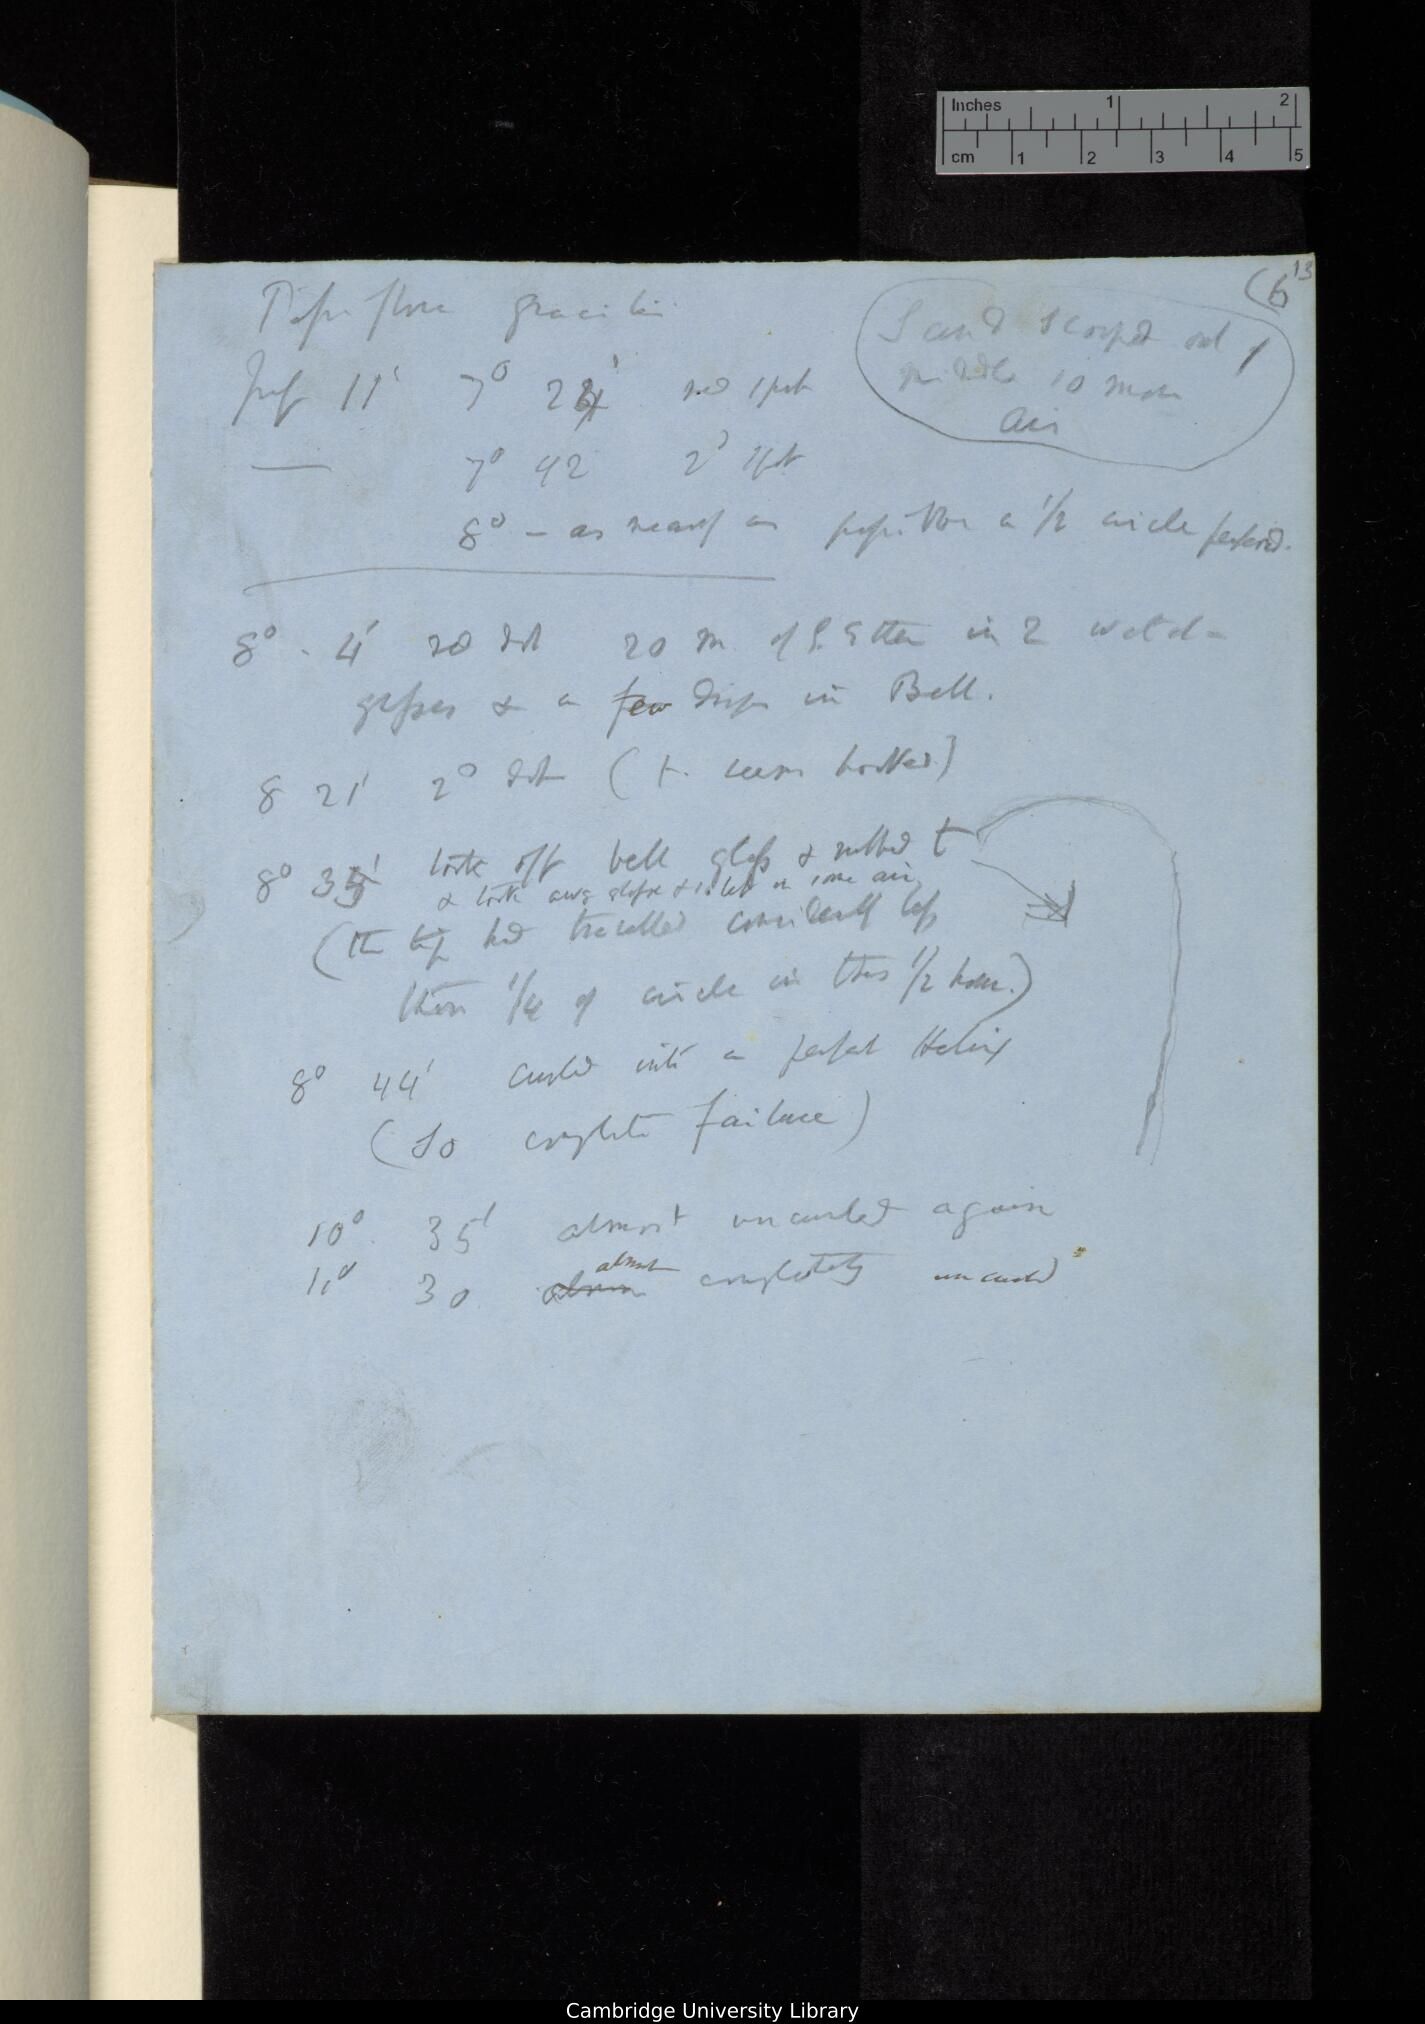 Inches 1 2
cm 1 2 3 4 5
(6 13
Passiflora gracilis
Sand scooped out of
middle to more
air
11' 7° 24' red spot
— 7° 42 2d spot
8° – as nearly as possible a 1/2 circle performed.
8° . 4' red dot 20 m. of S. Ether in 2 watch-
glasses & a few drops in Bell.
8 21' 2° dot (t. seems hooked)
8° 35' took off bell glass & rubbed t
& took away glasses & in same air
(the tip had travelled considerably less
than 1/4 of circle in this 1/2 hour.)
8° 44' curled into a perfect Helix
(So complete failure)
10° . 35' almost uncurled again
11° 30 almost completely uncurled
Cambridge University Library